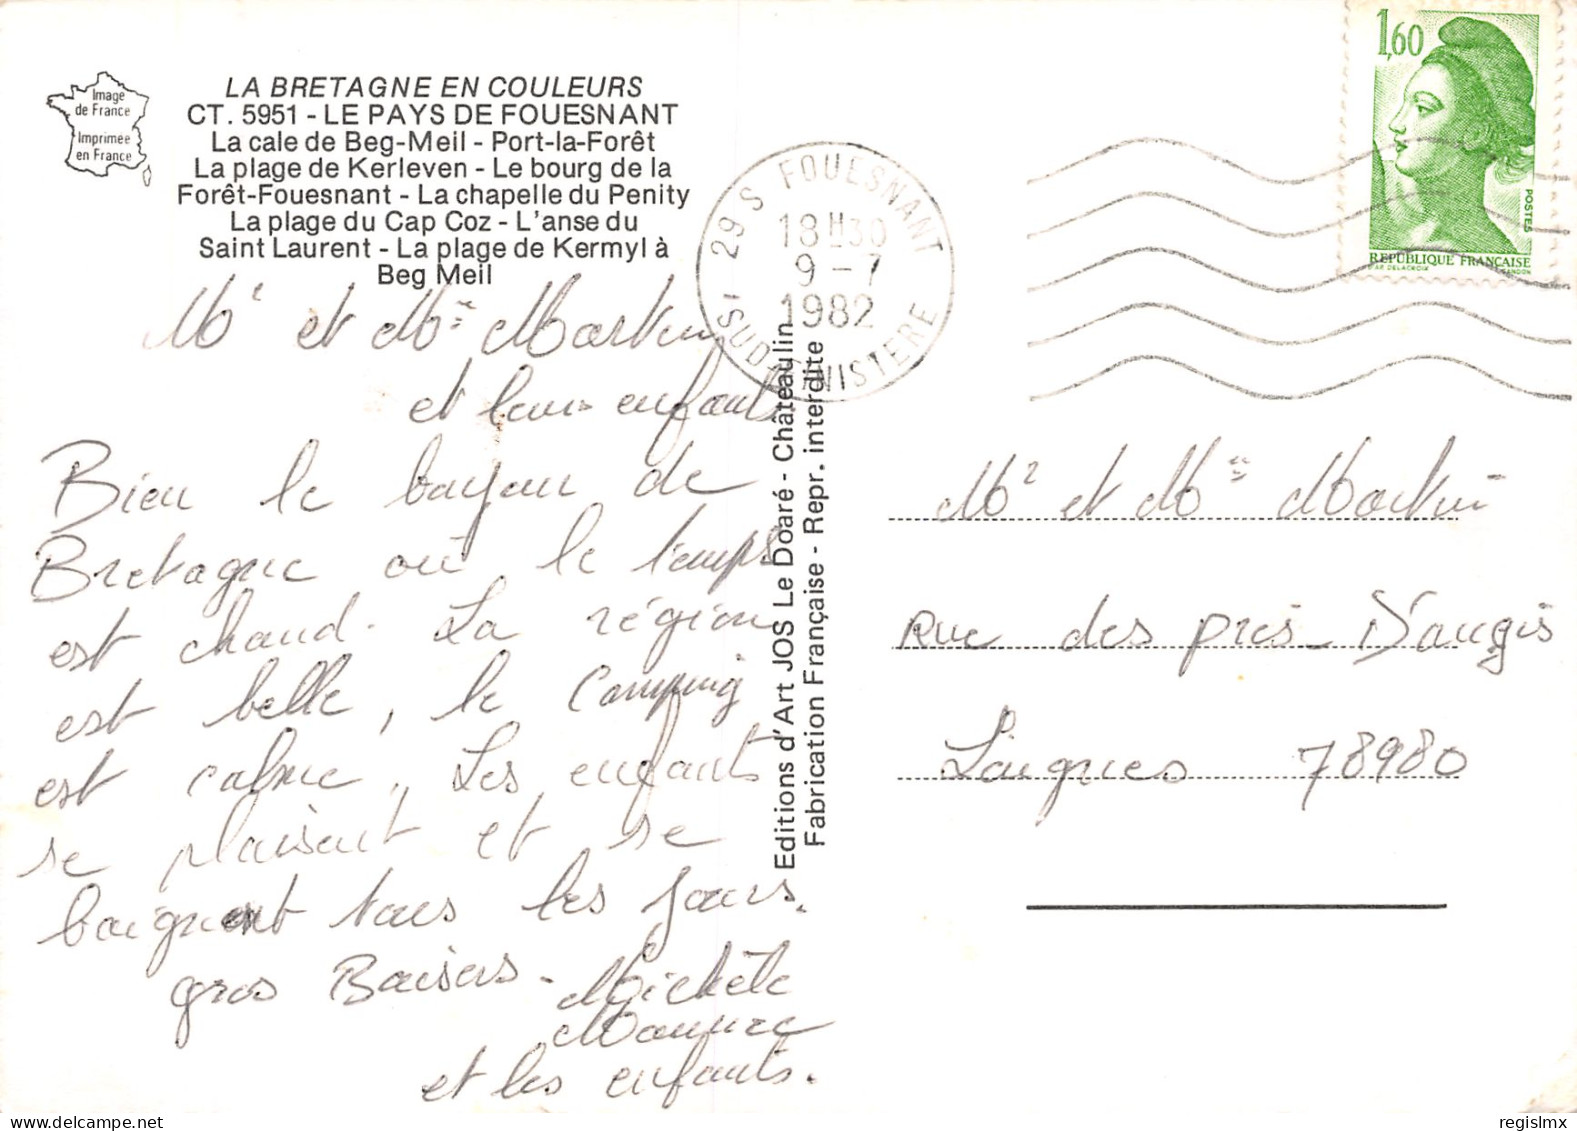 Image
de France
Imprimée
en France
LA BRETAGNE EN COULEURS
CT. 5951 - LE PAYS DE FOUESNANT
La cale de Beg-Meil - Port-la-Forêt
La plage de Kerleven - Le bourg de la
Forêt-Fouesnant - La chapelle du Penity
La plage du Cap Coz - L'anse du
Saint Laurent - La plage de Kermyl à
Beg Meil
Mr et Mme Martin
et leurs enfants
Bien le bonjour de
Bretagne où le temps
est chaud. La région
est belle, le camping
est calme, Les enfants
se plaisent et se
baignent tous les jours.
gros Baisers -
Michèle
Maurice
et les enfants.
Editions d'Art JOS Le Doaré - Châteaulin
Fabrication Française - Repr. interdite
29 S FOUESNANT
18H30
9-7
1982
(SUD FINISTERE
1,60
POSTES
REPUBLIQUE FRANÇAISE
D'AP. DELACROIX GANDON
Mr et Mme Martin
Rue des prés D'augis
78980
regislmx